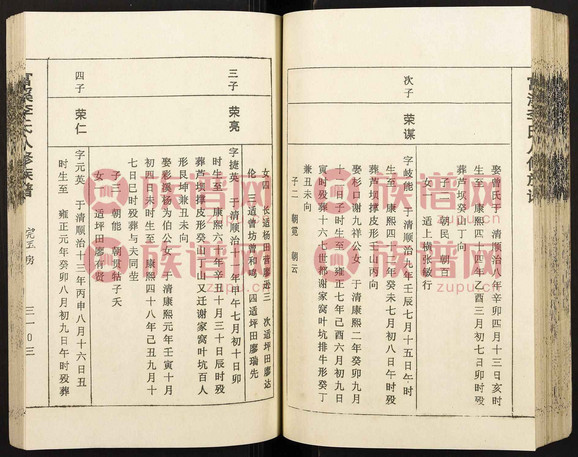 富溪李氏八修族谱
次子
荣谋
娶曾氏于清顺治八年辛卯四月十三日亥时
生至康熙四十四年乙酉三月初七日卯时殁
葬芦坝癸山丁向
子二朝民朝百
女一适上横张敏行
字岐能于清顺治九年壬辰七月十五日午时
生至康熙四十二年癸未七月初八日午时殁
葬芦坝撑皮形壬山丙向
娶杉口谢九祥公女于清康熙二年癸卯九月
十一日子时生至雍正七年己酉六月初九日
寅时殁葬十六都谢家窝叶坑排牛形癸丁
兼丑未向
子二朝霓朝云
女四长适杨田营廖运三次适坪田廖达
伦三适曾坊曾和鸣四适坪田廖瑞先
三子
荣亮
字捷英于清顺治十一年甲午七月初十日卯
时生至康熙六十年辛丑十月三十日辰时殁
葬芦坝撑皮形癸山丁山又迁谢家窝叶坑百人
形艮坤兼丑未向
娶彩溪杨为伯公女于清康熙元年壬寅十月
初四日未时生至康熙四十八年己丑九月十
七日巳时殁葬与夫同茔
子三朝能朝琪牯子夭
女一适坪田廖有贤
四子
荣仁
字元英于清顺治十三年丙申八月十六日丑
时生至雍正元年癸卯八月初九日午时殁葬
富溪李氏八修族谱
完五房
三一〇三
族谱网
zupu.cn